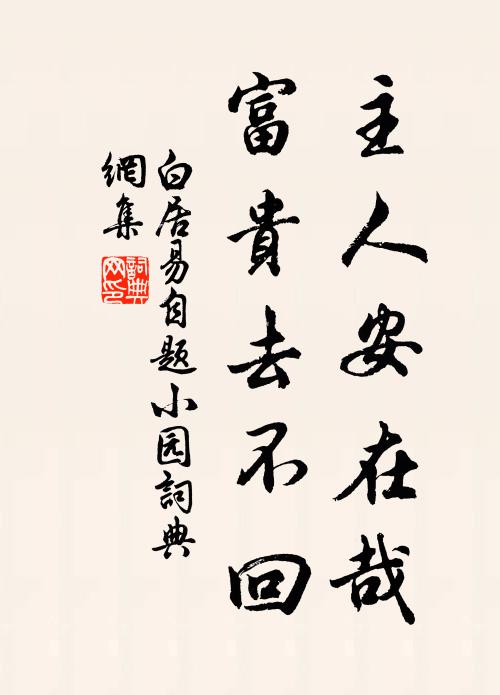 主人安在哉
富貴去不回
白居易自题小园詞典
網集
詞典
网印